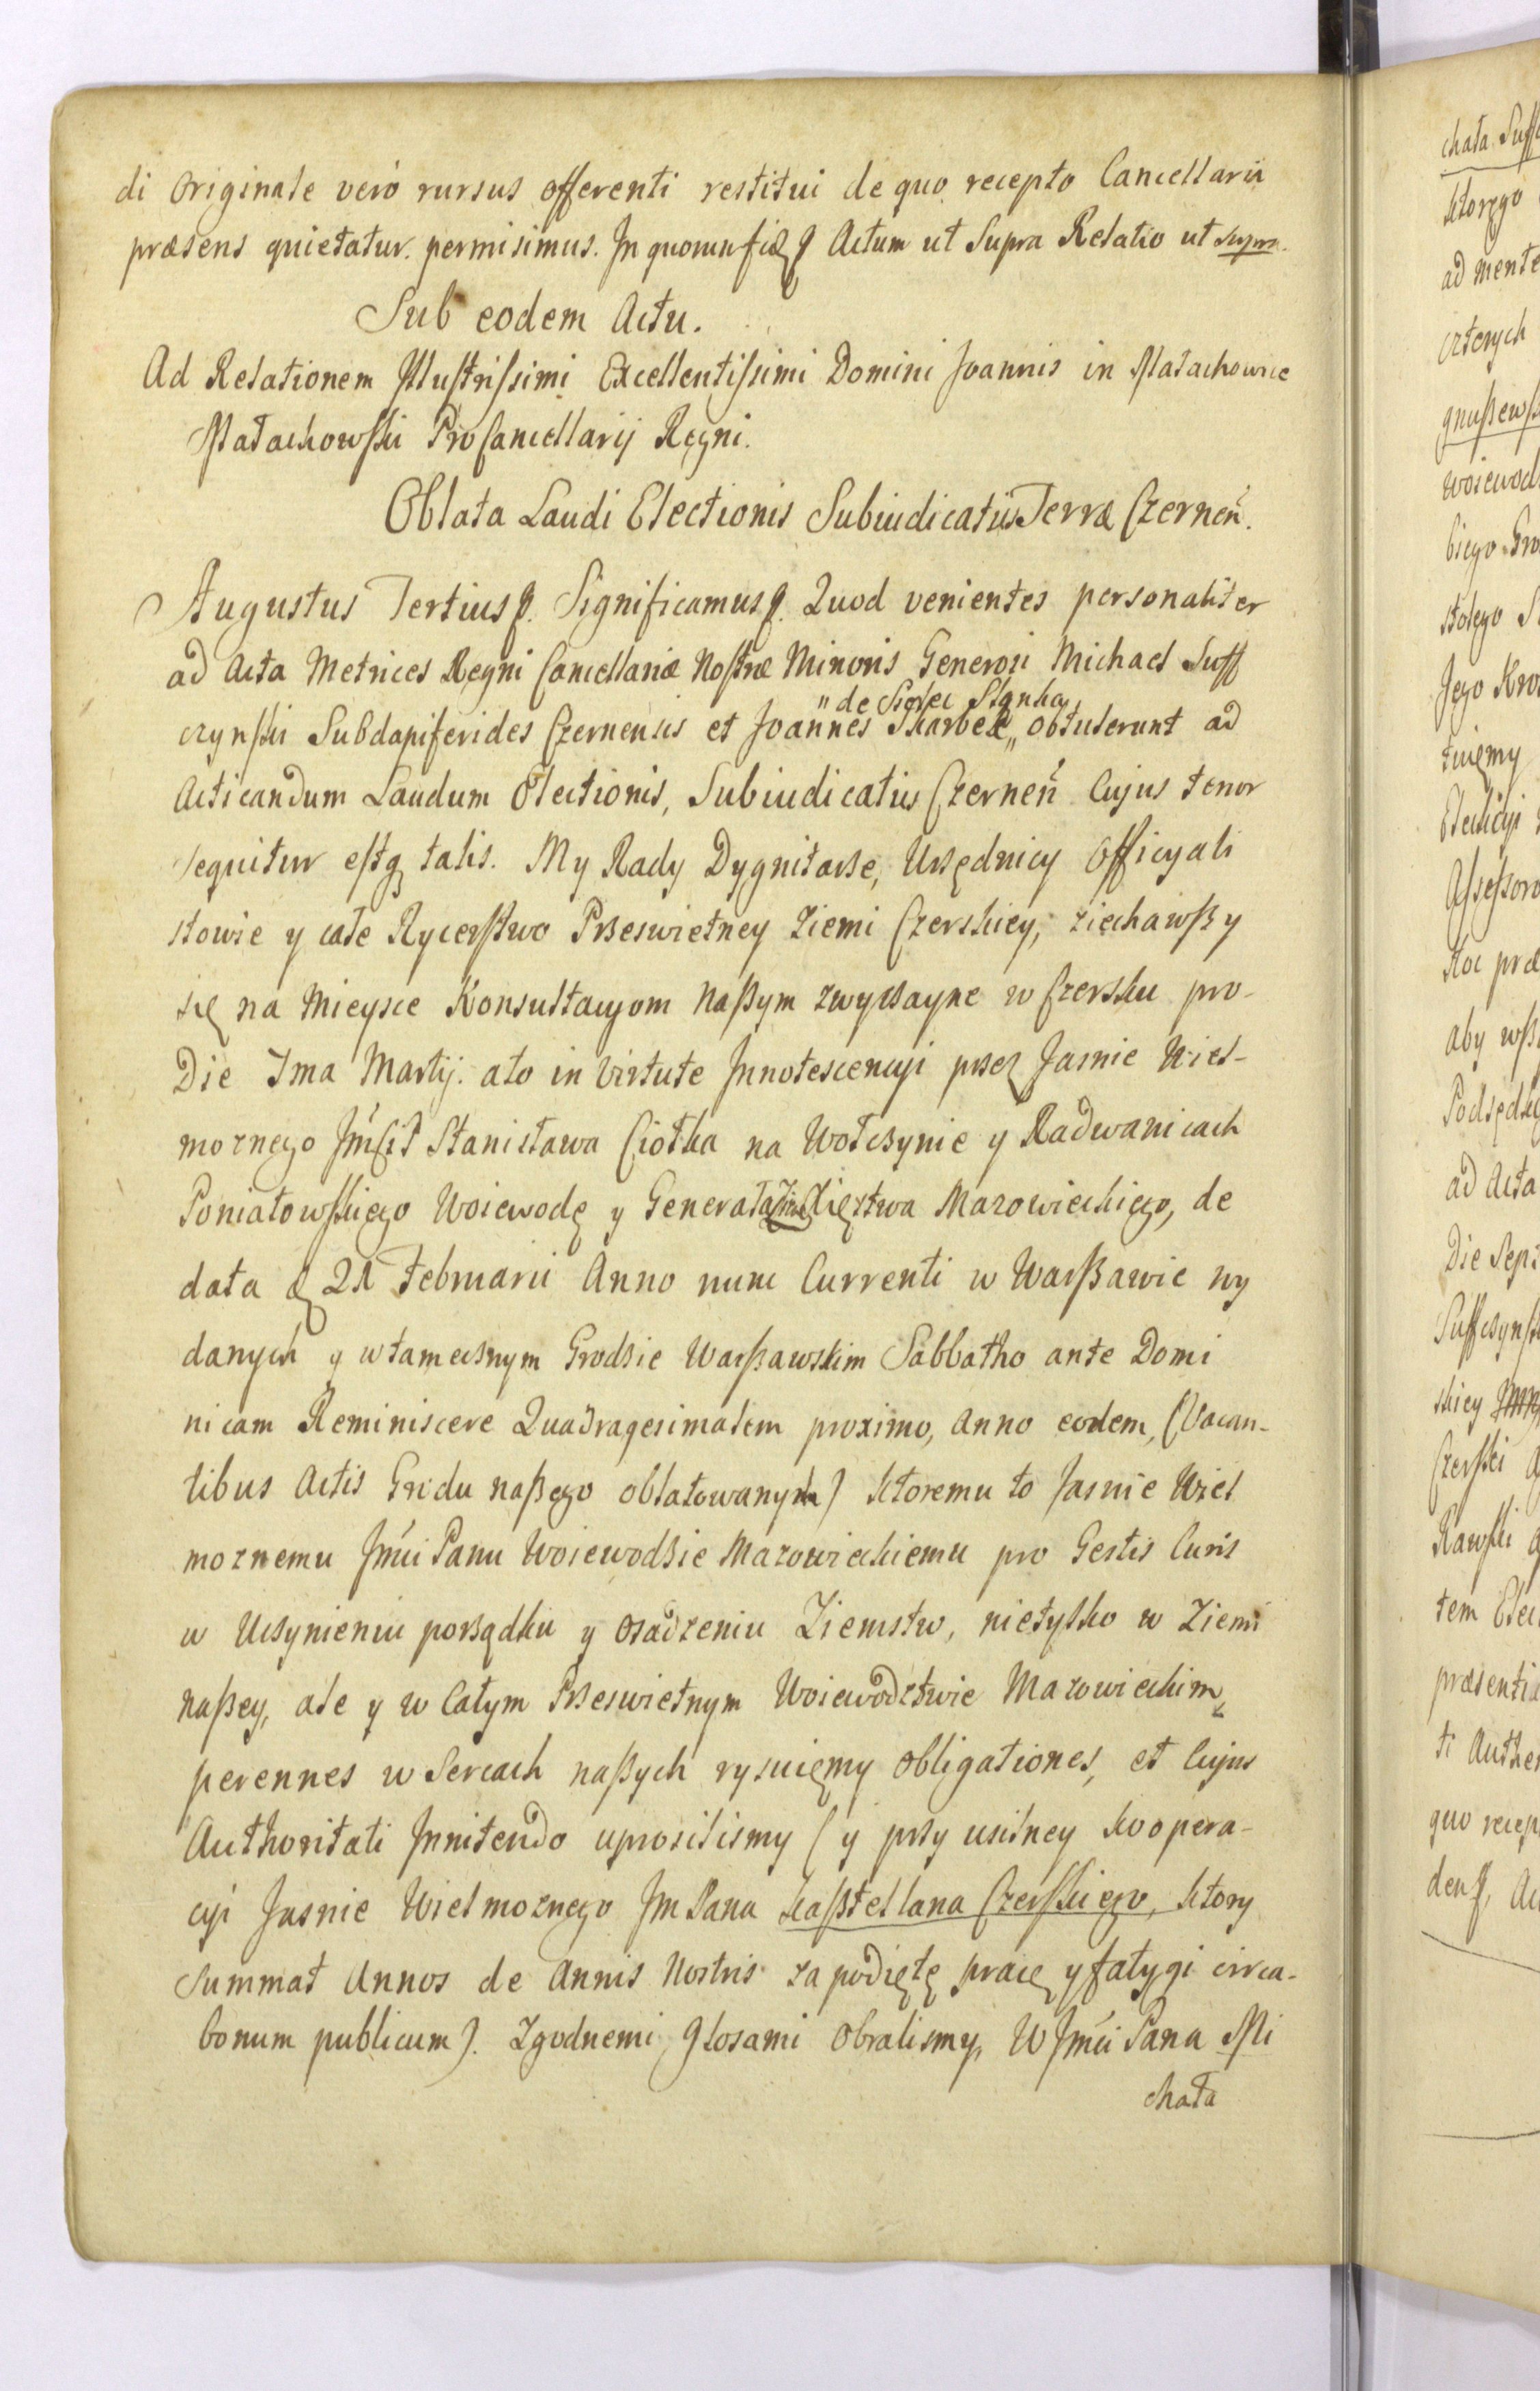 di Originale vero rursus offerenti restitui de quo recepto Cancellaria
præsens quietatur. permisimus. In quorum fid. Actum ut Supra Relatio ut supra.
Sub eodem Actu.
Ad Relationem Illustrissimi Excellentissimi Domini Joannis in Małachowice
Małachowski ProCancellarij Regni.
Oblata Laudi Electionis Subiudicatus Terræ Czerneń.
Augustus Tertius. Significamus. Quod venientes personaliter
ad Acta Metrices Regni Cancellariæ Nostræ Minoris Generosi Michael Suff
czynski Subdapiferides Czernensis et Joannes Skarbek „de Sielec Stanka„ obtulerunt ad
Acticandum Laudum Electionis, Subiudicatus Czerneń Cujus tenor
sequitur estq talis. My Rady Dygnitarze, Urzędnicy Officyali
stowie y całe Rycerstwo Prześwietney Ziemi Czerskiey, ziechawszy
się na Mieysce Konsultacyom naszym zwyczayne w Czersku pro
Die 7ma Martij. ato in Virtute Innotescencyi przez Jasnie Wiel-
moznego JmCiP Stanisława Ciołka na Wołczynie y Radwanicach
Poniatowskiego Woiewodę y Generała Xięztwa Mazowieckiego, de
data 21 Februarii Anno nunc Currenti w Warszawie wy
danych y wtamecznym Grodzie Warszawskim Sabbatho ante Domi
nicam Reminiscere Quadragesimalem proximo, Anno eodem, (Vacan-
tibus Actis Grodu naszego oblatowanych) ktoremu to Jasnie Wiel
moznemu Jmci Panu Woiewodzie Mazowieckiemu pro Gestis Curis
w Uczynieniu porządku y osadzeniu Ziemstw, nietylko w Ziemi
naszey, ale y w Całym Prześwietnym Woiewodztwie Mazowieckim,
perennes w Sercach naszych rysuięmy obligationes, et Cujus
Authoritati Innitendo uprosilismy (y przy usilney koopera-
cyi Jasnie Wielmoznego Jm Pana kasztellana Czerskiego, ktory
summat Annos de Annis Nostris za podiętę pracę y fatygi circa-
bonum publicum). Zgodnemi Głosami obralismy, W Jmci Pana Mi
chała